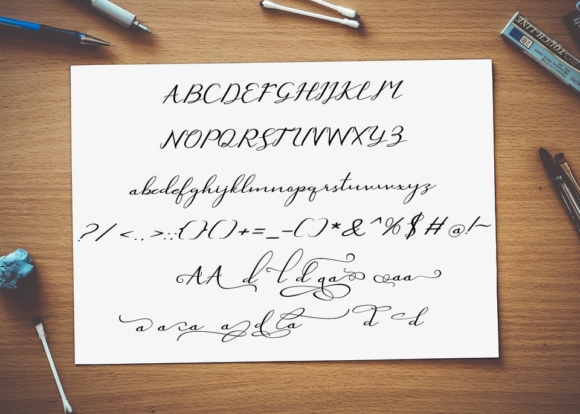 TOUCH LINE
ABCDEFGHIJKLM
NOPQRSTUVWXYZ
abcdefghijklmnopqrstuvwxyz
?/<..>::{}()+=_-()*&^%$#@!~
AA d l d ga a aa
a a a a d a d d